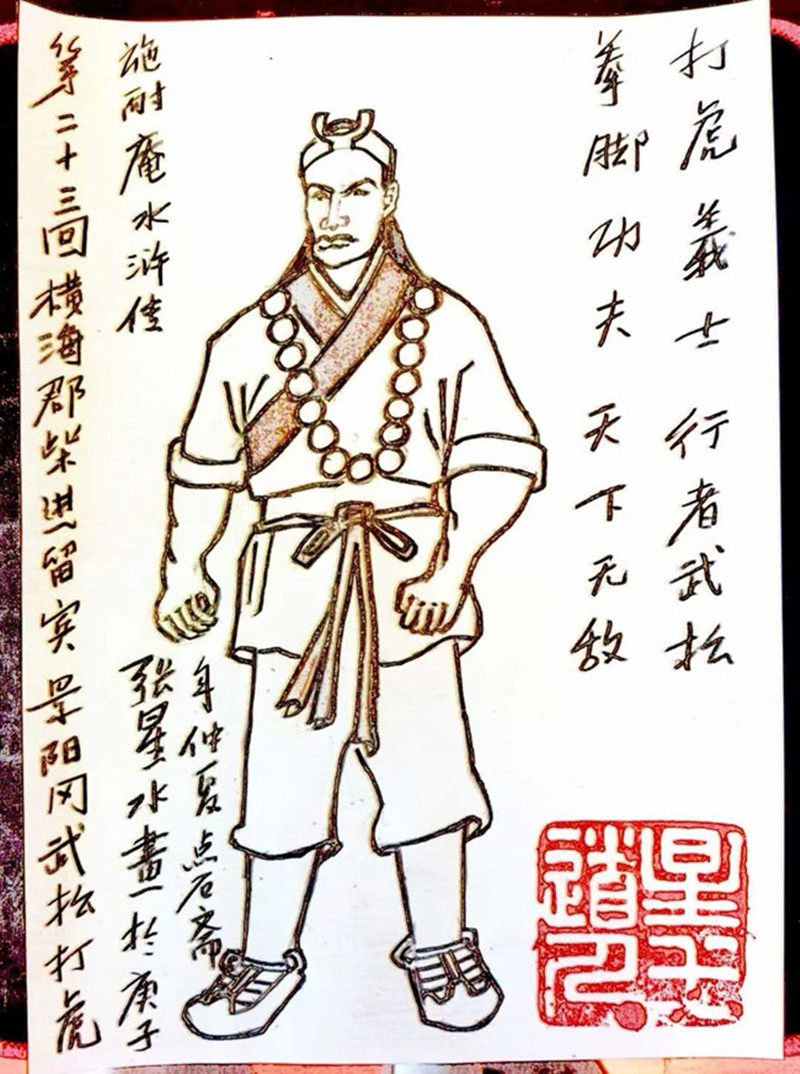 打虎義士 行者武松
拳脚功夫 天下无敌
施耐庵水浒传
第二十三回横海郡柴进留宾景阳冈武松打虎
张星水畫於庚子
年仲夏点石斋